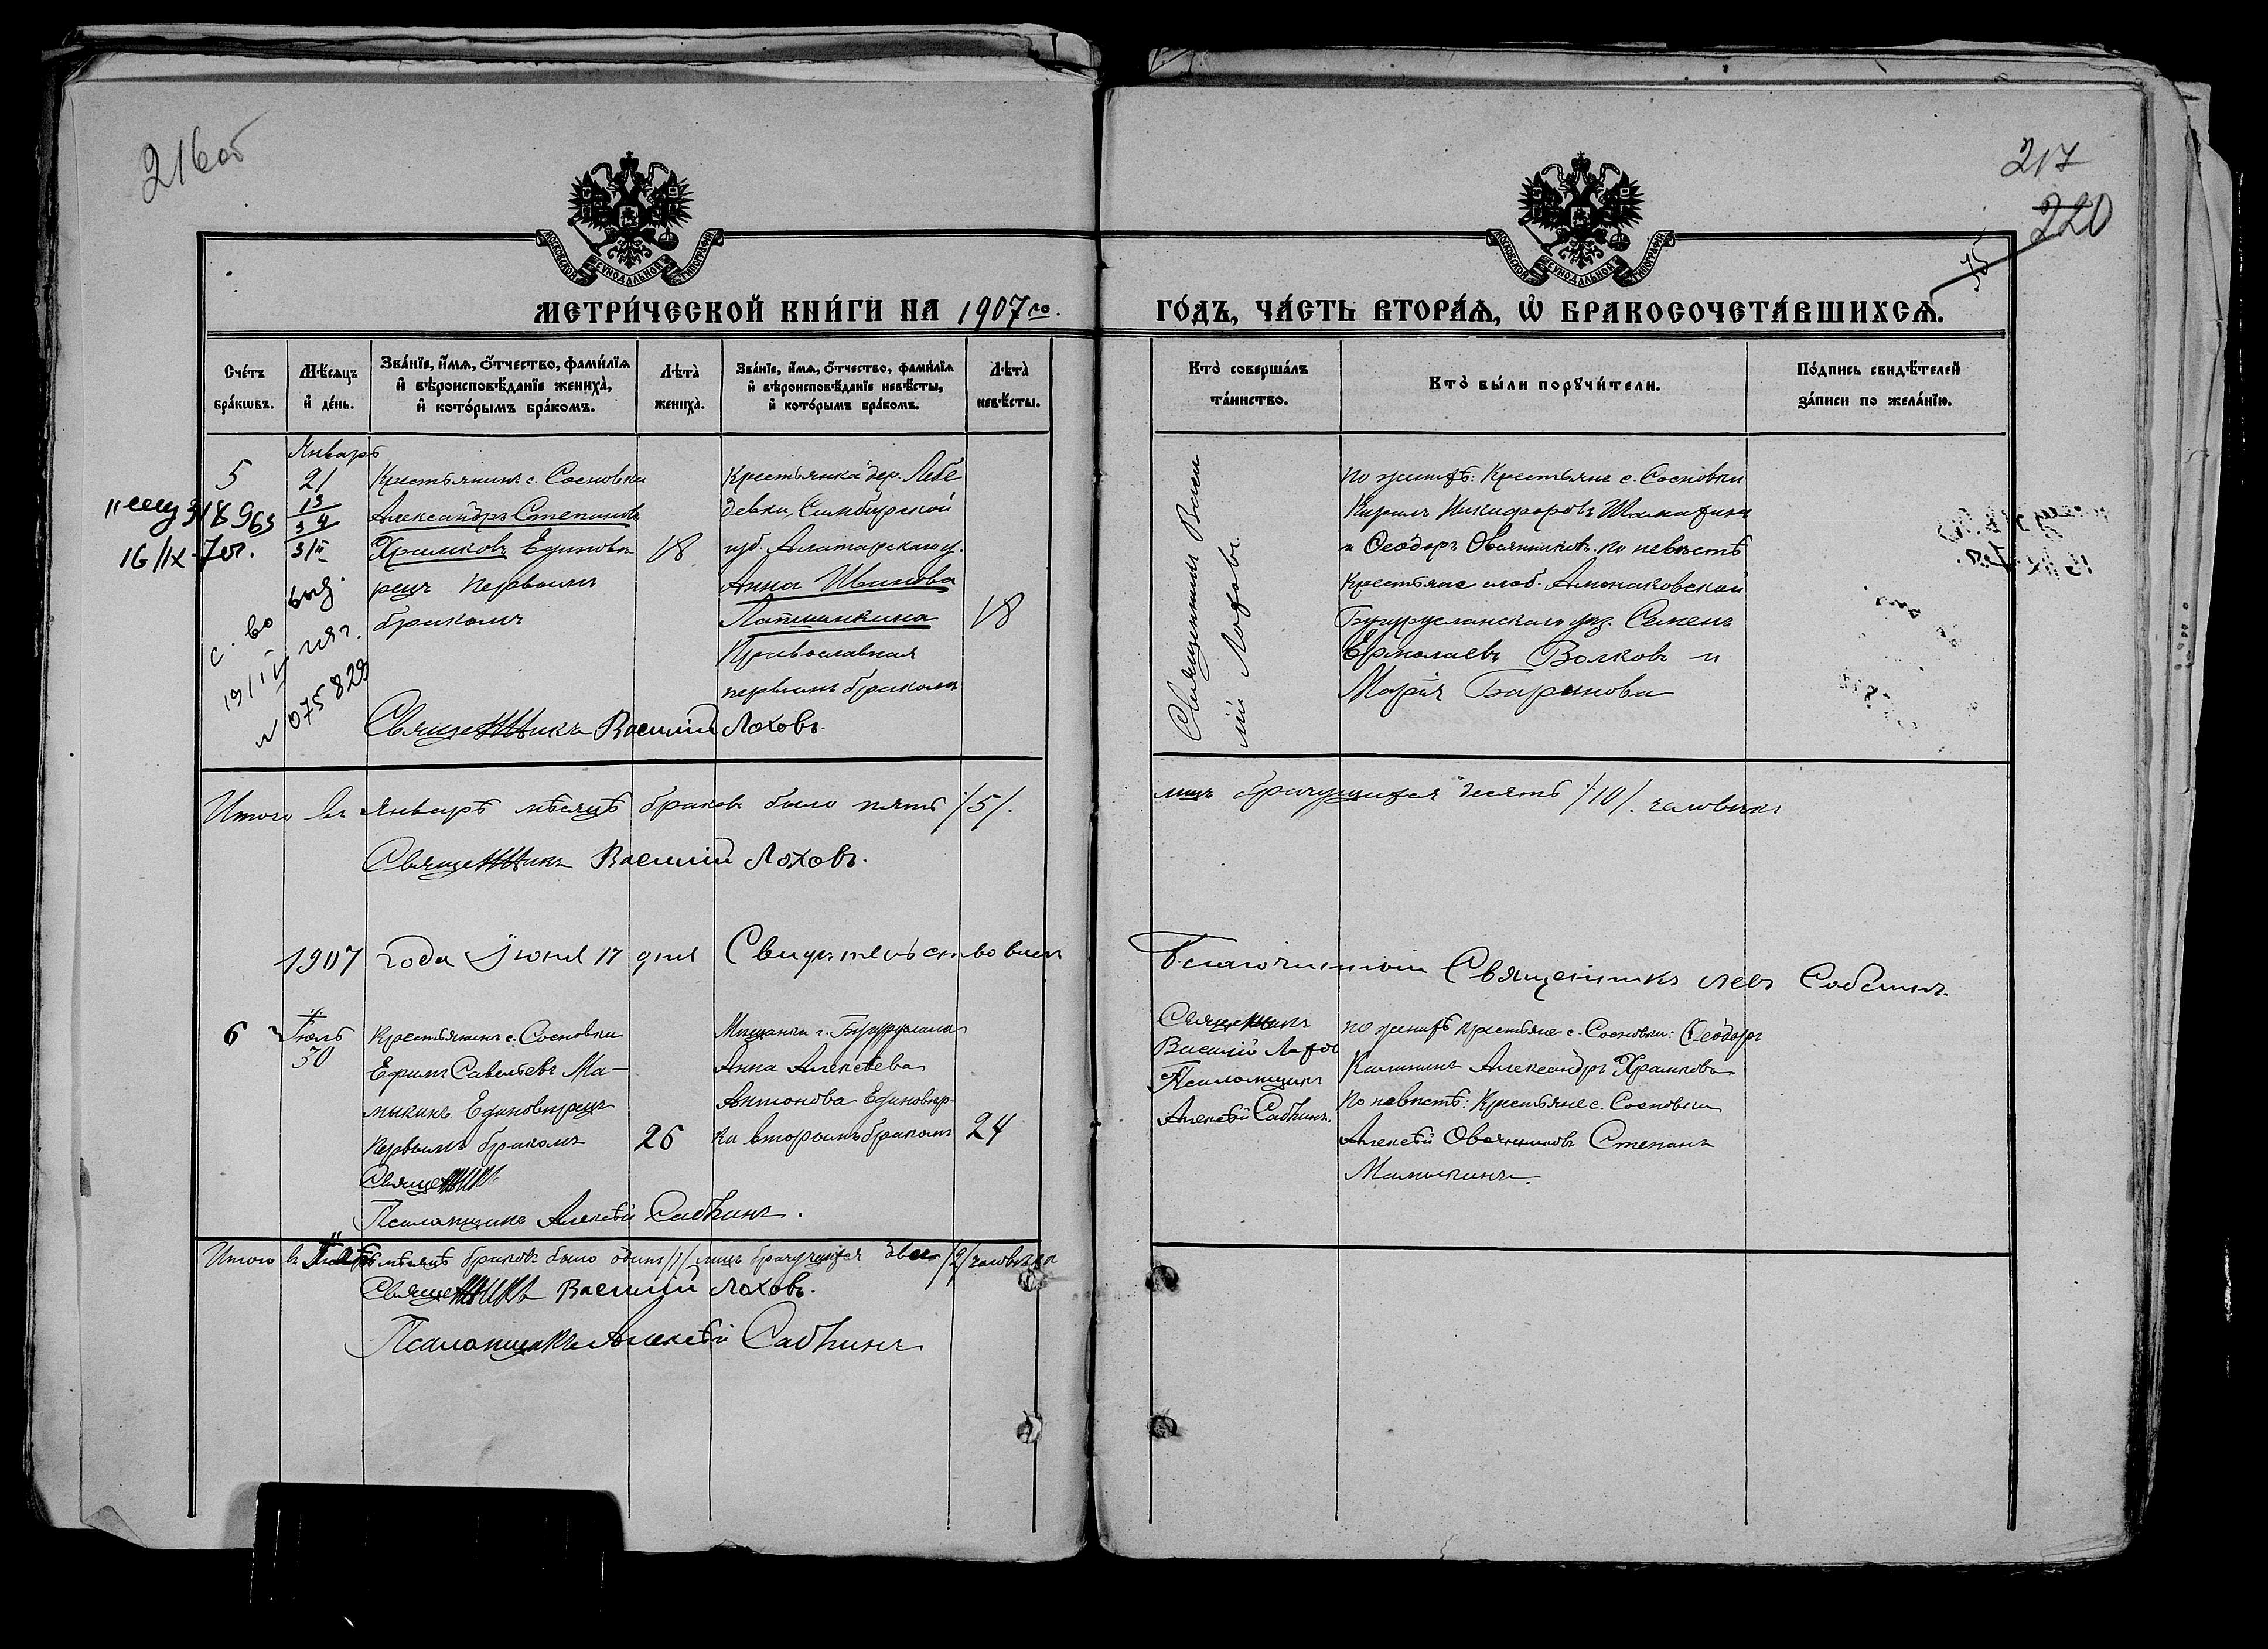 216об
217
220
МОСКОВСКОЙ СѴНОДАЛЬНОЙ ТИПОГРАФІИ
МОСКОВСКОЙ СѴНОДАЛЬНОЙ ТИПОГРАФІИ
МЕТРИ́ЧЕСКОЙ КНИ́ГИ НА 1907 го.
ГО́ДЪ, ЧА́СТЬ ВТОРА́Ѧ, Ѡ҆ БРАКОСОЧЕТА́ВШИХСѦ.
Сче́тъ бра́кѡвъ.
Мѣ́сѧцъ и҆ де́нь.
Зва́нїе, и҆́мѧ, ѻ҆́тчество, фами́лїѧ и҆ вѣроисповѣ́данїе жениха̀, и҆ кото́рымъ бра́комъ.
Лѣта̀ жениха̀.
Зва́нїе, и҆́мѧ, ѻ҆́тчество, фами́лїѧ и҆ вѣроисповѣ́данїе невѣ́сты, и҆ кото́рымъ бра́комъ.
Лѣта̀ невѣ́сты.
Кто̀ соверша́лъ та́инство.
Кто̀ бы́ли порꙋчи́тели.
По́дпись свидѣ́телей за́писи по жела́нїю.
5
Январь
21
13
34
3/II
318963
16/IX-7
с. во выд.
19/IV
075829
Крестьянинъ с. Сосновки
Александръ Степановъ
Храмковъ Единовѣ
рецъ первымъ
бракомъ
18
Крестьянка дер. Лебе
девки, Симбирской
губ. Алатырскаго у.
Анна Иванова
Лапшанкина
Православная
первымъ бракомъ
18
Священникъ Васи
лій Лоховъ.
По женихѣ: Крестьяне с. Сосновки
Кирилъ Никифоровъ
и Ѳеодоръ Овсянниковъ. по невѣстѣ
Крестьяне слоб.
Бугурусланскаго уѣз. Семенъ
Ермолаевъ Волковъ и
Марія Баринова
Священникъ Василій Лоховъ.
Итого въ Январѣ мѣсяцѣ браковъ было пять /5/.
лицъ брачущихся десять /10/. человѣкъ
Священникъ Василій Лоховъ.
1907 года Іюня 17 дня Свидѣтельствовалъ
Благочинный Священникъ Левъ
6
Іюль
30
Крестьянинъ с. Сосновки
Ефимъ Савельевъ Ма-
мыкинъ Единовѣрецъ
первымъ бракомъ
26
Мѣщанка г. Бугуруслана
Анна Алексѣева
Антонова Единовѣр-
ка вторымъ бракомъ
24
Священникъ
Василій Лохов
Псаломщикъ
Алексѣй Савкинъ.
по женихѣ крестьяне с. Сосновки: Ѳеодоръ
Калининъ Александръ Храмковъ
по невѣстѣ: Крестьяне с. Сосновки
Алексѣй Овсянниковъ Степанъ
Мамыкинъ.
Священникъ
Псаломщикъ Алексѣй Савкинъ.
Итого въ мѣсяцѣ браковъ было одинъ /1/ лицъ брачущихся двое /2/ человѣка
Священникъ Василій Лоховъ.
Псаломщикъ Алексѣй Савкинъ